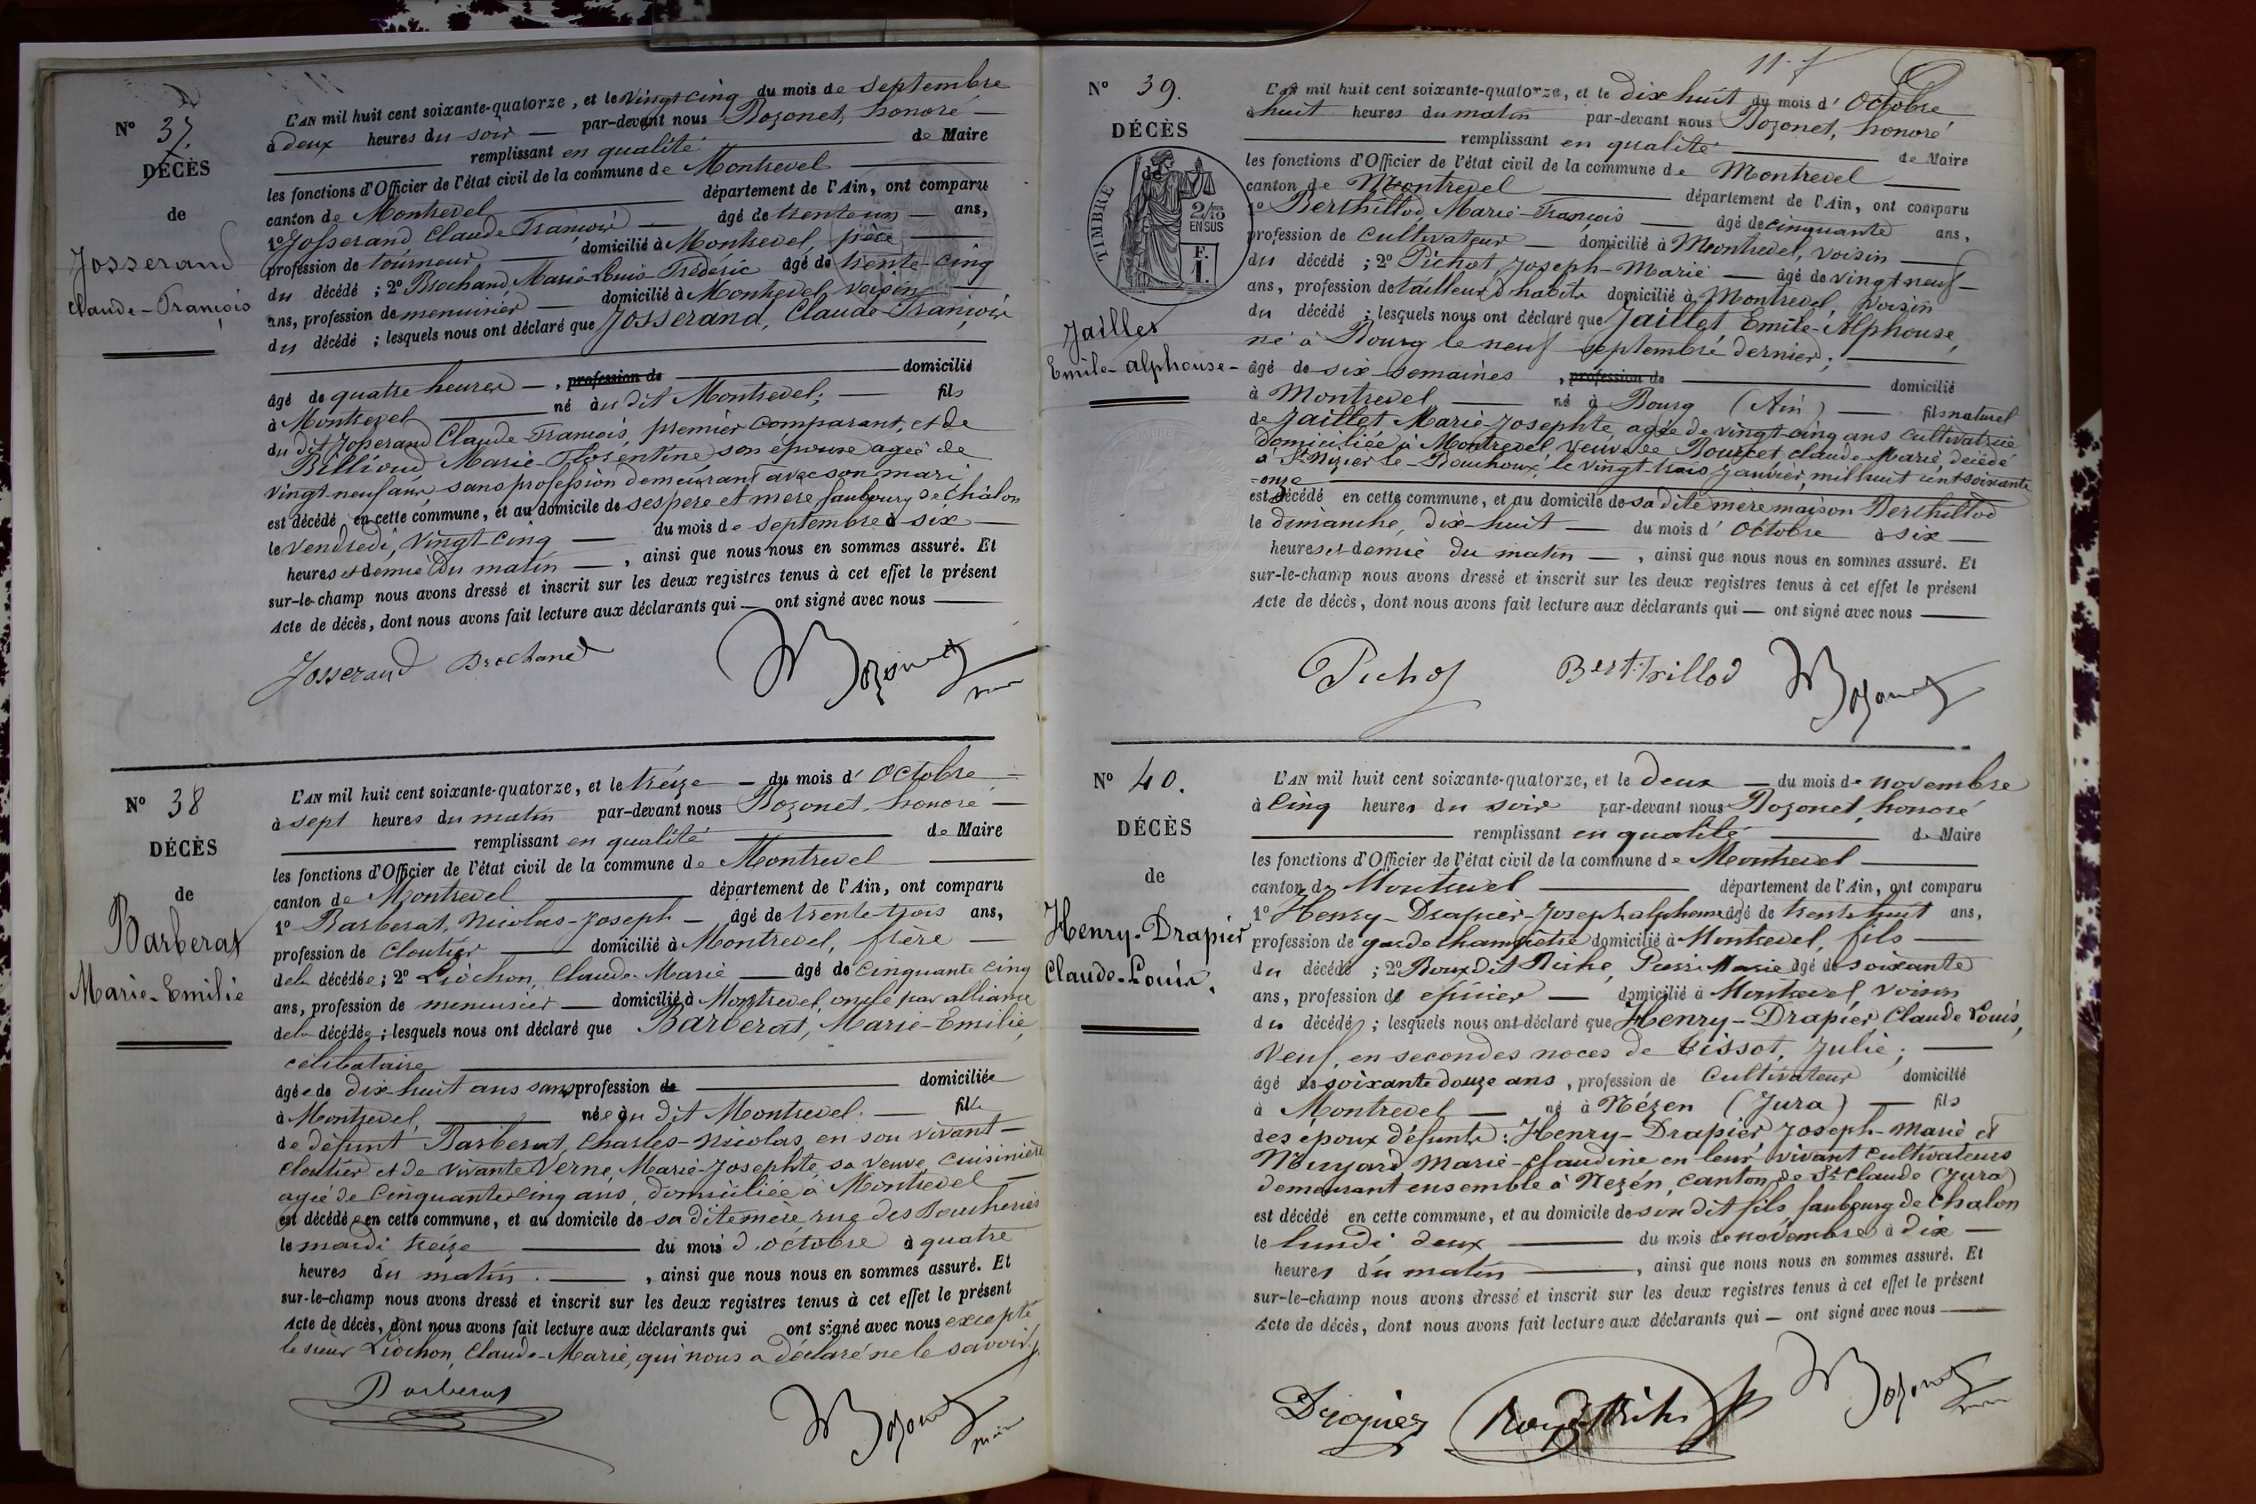 N° 37.
DÉCÈS
de
Josserand
Claude-François
L'AN mil huit cent soixante-quatorze, et le vingt cinq du mois de septembre
à deux heures du soir — par-devant nous Bozonet, honoré —
remplissant en qualité de Maire
les fonctions d'Officier de l'état civil de la commune de Montrevel
canton de Montrevel département de l'Ain, ont comparu
1° Josserand Claude François — âgé de trente un — ans,
profession de tourneur — domicilié à Montrevel, père
du décédé ; 2° Brochand Marie-Louis-Frédéric âgé de trente-cinq
ans, profession de menuisier — domicilié à Montrevel voisin
du décédé ; lesquels nous ont déclaré que Josserand, Claude-François
âgé de quatre heures —, profession de domicilié
à Montrevel — né àu dit Montrevel; — fils
du dit Josserand Claude François, premier comparant, et de
Billioud Marie-Florentine son épouse agée de
vingt neuf ans sans profession demeurant avec son mari
est décédé en cette commune, et au domicile de ses père et mère faubourg de Châlon
le vendredi, vingt-cinq — du mois de septembre à six —
heures et demie du matin —, ainsi que nous nous en sommes assuré. Et
sur-le-champ nous avons dressé et inscrit sur les deux registres tenus à cet effet le présent
Acte de décès, dont nous avons fait lecture aux déclarants qui — ont signé avec nous —
Josserand Brochand Bozonet
N° 38
DÉCÈS
de
Barberat
Marie-Emilie
L'AN mil huit cent soixante-quatorze, et le treize — du mois d' Octobre —
à sept heures du matin par-devant nous Bozonet, honoré —
remplissant en qualité de Maire
les fonctions d'Officier de l'état civil de la commune de Montrevel
canton de Montrevel département de l'Ain, ont comparu
1° Barberat, Nicolas-Joseph — âgé de trente-trois ans,
profession de cloutier — domicilié à Montrevel, frère —
de la décédée ; 2° Liochon, Claude-Marie — âgé de cinquante cinq
ans, profession de menuisier — domicilié à Montrevel, oncle par alliance
de la décédée ; lesquels nous ont déclaré que Barberat, Marie-Emilie,
célibataire
âgée de dix-huit ans sans profession de domiciliée
à Montrevel, — née àu dit Montrevel. — fille
de défunt Barberat, Charles-Nicolas, en son vivant —
cloutier et de vivante Verne, Marie-Josephte, sa veuve, cuisinière
agée de cinquante cinq ans, domiciliée à Montrevel
est décédée en cette commune, et au domicile de sa dite mère, rue des Boucheries
le mardi treize — du mois d'octobre à quatre
heures du matin. —, ainsi que nous nous en sommes assuré. Et
sur-le-champ nous avons dressé et inscrit sur les deux registres tenus à cet effet le présent
Acte de décès, dont nous avons fait lecture aux déclarants qui ont signé avec nous excepté
le sieur Liochon, Claude-Marie, qui nous a déclaré ne le savoir.
Barberat Bozonet maire
11.
N° 39.
DÉCÈS
de
TIMBRE
2/10
EN SUS
F.
1.
Jaillet
Emile-alphonse-
L'AN mil huit cent soixante-quatorze, et le dix huit du mois d' Octobre
à huit heures du matin par-devant nous Bozonet, honoré
remplissant en qualité de Maire
les fonctions d'Officier de l'état civil de la commune de Montrevel
canton de Montrevel département de l'Ain, ont comparu
1° Berthillod, Marie-François — âgé de cinquante ans,
profession de cultivateur — domicilié à Montrevel, voisin —
du décédé ; 2° Pichot, Joseph-Marie — âgé de vingt neuf —
ans, profession de tailleur d'habits domicilié à Montrevel, voisin
du décédé ; lesquels nous ont déclaré que Jaillet Emile-Alphonse,
né à Bourg le neuf septembre dernier; —
âgé de six semaines, profession de domicilié
à Montrevel — né à Bourg (Ain) — fils naturel
de Jaillet Marie-Josephte, agée de vingt-cinq ans cultivatrice
domiciliée à Montrevel, veuve de Bourcet Claude-Marie, décédé
à St Nizier-le-Bouchoux, le vingt trois Janvier, mil huit cent soixante
-onze
est décédé en cette commune, et au domicile de sa dite mère maison Berthillod
le dimanche, dix-huit — du mois d' Octobre à six —
heures et demie du matin —, ainsi que nous nous en sommes assuré. Et
sur-le-champ nous avons dressé et inscrit sur les deux registres tenus à cet effet le présent
Acte de décès, dont nous avons fait lecture aux déclarants qui — ont signé avec nous —
Pichot Berthillod Bozonet
N° 40.
DÉCÈS
de
Henry-Drapier
Claude-Louis.
L'AN mil huit cent soixante-quatorze, et le deux — du mois de novembre
à cinq heures du soir par-devant nous Bozonet, honoré
remplissant en qualité de Maire
les fonctions d'Officier de l'état civil de la commune de Montrevel
canton de Montrevel département de l'Ain, ont comparu
1° Henry-Drapier-Joseph alphonse âgé de trente huit ans,
profession de garde champêtre domicilié à Montrevel, fils
du décédé ; 2° Roux dit Riche, Pierre Marie âgé de soixante
ans, profession de épicier — domicilié à Montrevel, voisin
du décédé ; lesquels nous ont déclaré que Henry-Drapier, Claude Louis,
Veuf, en secondes noces de Tissot, Julie; —
âgé de soixante douze ans, profession de Cultivateur domicilié
à Montrevel — né à Nézen (Jura) — fils
des époux défunts: Henry-Drapier Joseph-Marie et
Marie-Claudine en leur vivant cultivateurs
demeurant ensemble à Nezén, canton de St Claude (Jura)
est décédé en cette commune, et au domicile de son dit fils, faubourg de Chalon
le lundi deux — du mois de novembre à dix —
heures du matin —, ainsi que nous nous en sommes assuré. Et
sur-le-champ nous avons dressé et inscrit sur les deux registres tenus à cet effet le présent
Acte de décès, dont nous avons fait lecture aux déclarants qui — ont signé avec nous —
Drapier Bozonet